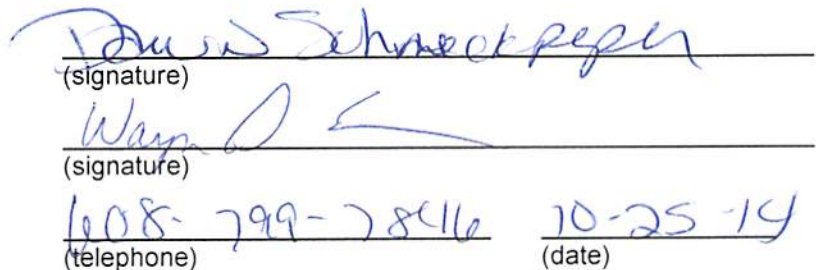 Schmeckpeper
(signature)
Wayn D
(signature)
608-799-7846 10-25-14
(telephone) (date)